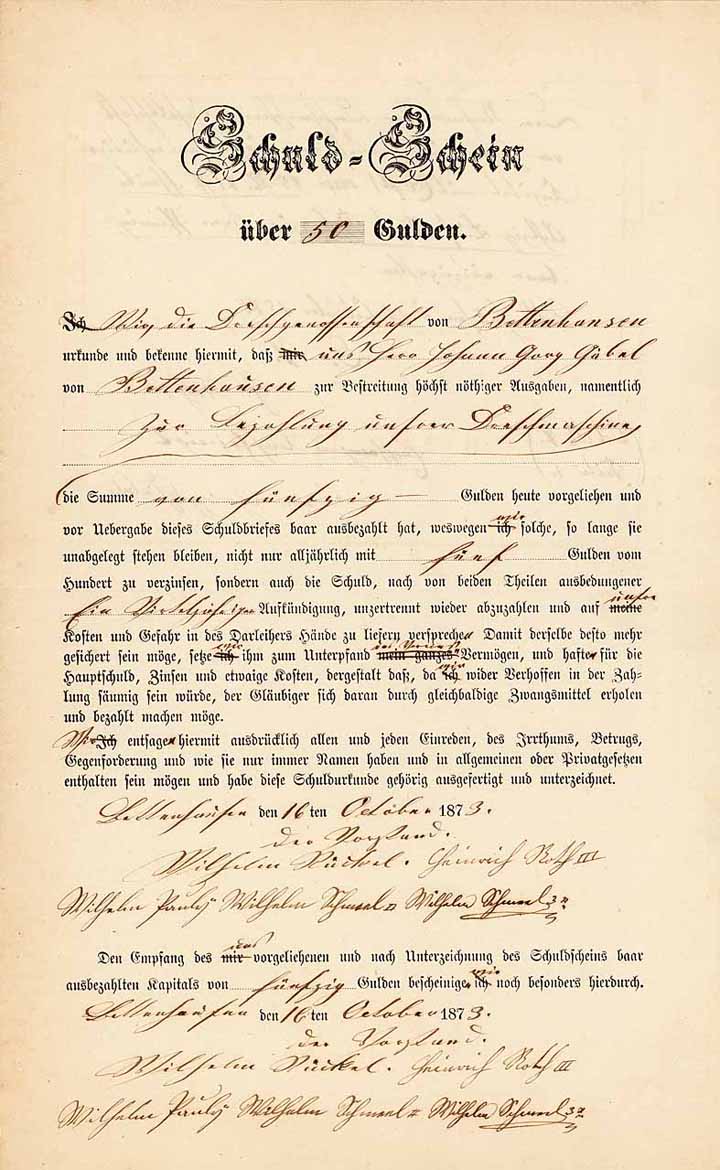 Schuld-Schein
über 50 Gulden.
Ich Wir die Dreschgenossenschaft von Bettenhausen
urkunde und bekenne hiermit, daß mir uns Herr Johann Georg Gübel
von Bettenhausen zur Bestreitung höchst nöthiger Ausgaben, namentlich
Zur Bezahlung unsrer Dreschmaschine
die Summe von fünfzig Gulden heute vorgeliehen und
vor Uebergabe dieses Schuldbriefes baar ausbezahlt hat, weswegen ich wir solche, so lange sie
unabgelegt stehen bleiben, nicht nur alljährlich mit fünf Gulden vom
Hundert zu verzinsen, sondern auch die Schuld, nach von beiden Theilen ausbedungener
Ein Aufkündigung, unzertrennt wieder abzuzahlen und auf meine unsre
Kosten und Gefahr in des Darleihers Hände zu liefern versprechen Damit derselbe desto mehr
gesichert sein möge, setze ich wir ihm zum Unterpfand mein ganzes Vermögen, und haften für die
Hauptschuld, Zinsen und etwaige Kosten, dergestalt daß, da ich wir wider Verhoffen in der Zah-
lung säumig sein würde, der Gläubiger sich daran durch gleichbaldige Zwangsmittel erholen
und bezahlt machen möge.
Wir Ich entsagen hiermit ausdrücklich allen und jeden Einreden, des Irrthums, Betrugs,
Gegenforderung und wie sie nur immer Namen haben und in allgemeinen oder Privatgesetzen
enthalten sein mögen und habe diese Schuldurkunde gehörig ausgefertigt und unterzeichnet.
Bettenhausen den 16ten October 1873.
Der Vorstand.
Wilhelm Rückel. Heinrich Roth III
Wilhelm Pauly Wilhelm Schmeel II Wilhelm Schmeel 3r
Den Empfang des mir uns vorgeliehenen und nach Unterzeichnung des Schuldscheins baar
ausbezahlten Kapitals von fünfzig Gulden bescheinige ich wir noch besonders hierdurch.
Bettenhausen den 16ten October 1873.
Der Vorstand.
Wilhelm Rückel. Heinrich Roth III
Wilhelm Pauly Wilhelm Schmeel II Wilhelm Schmeel 3r